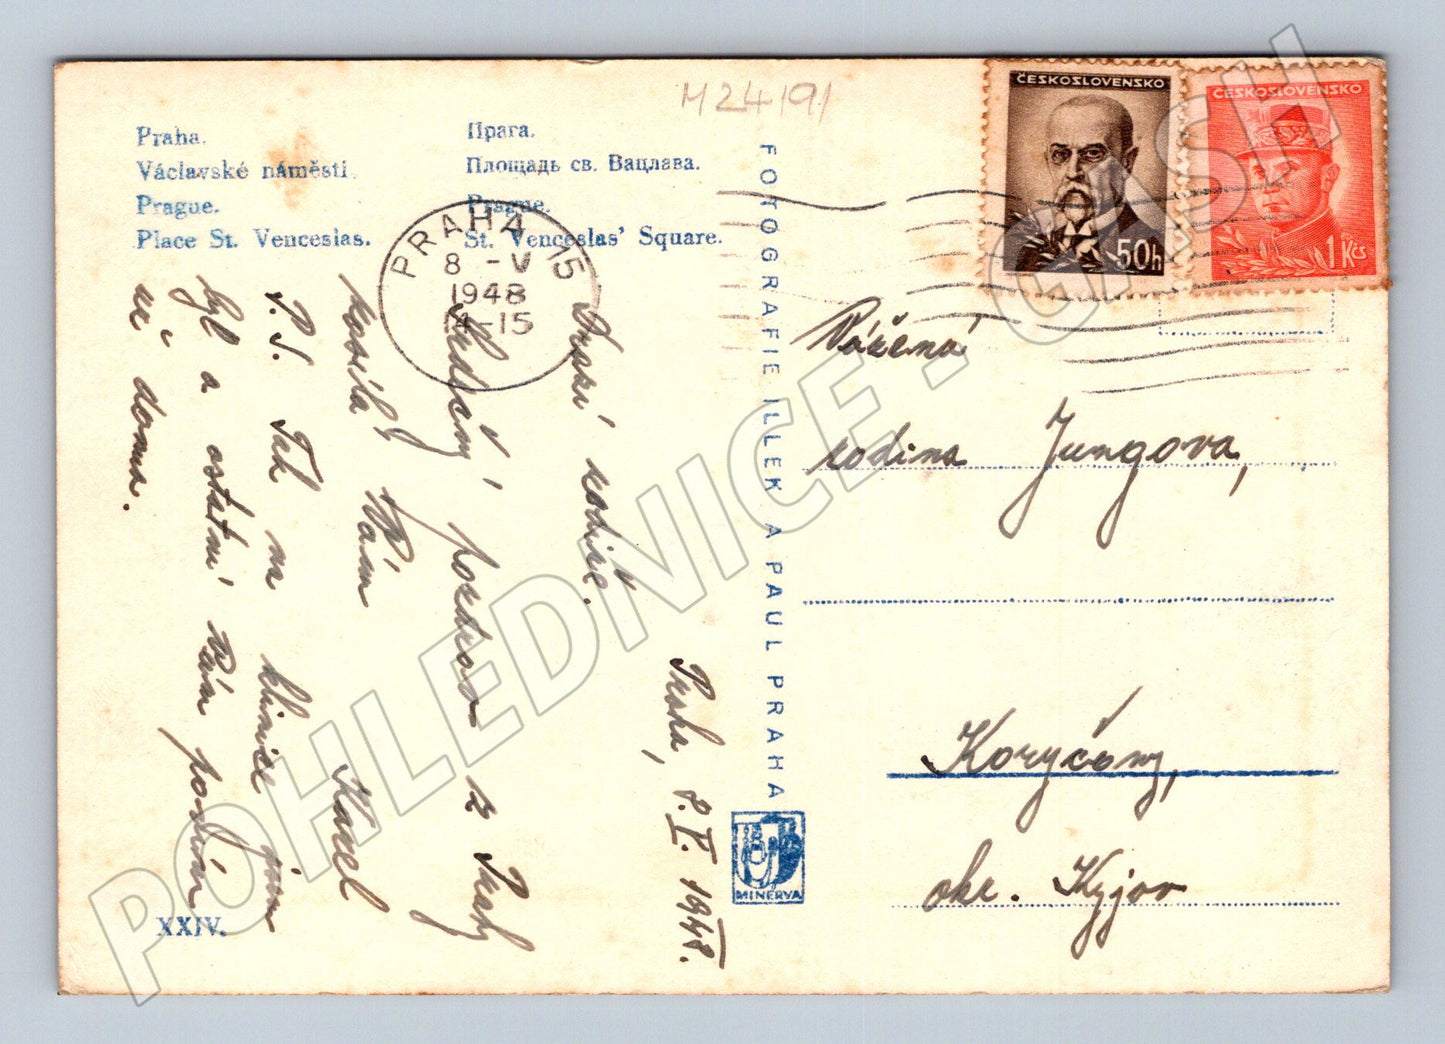 M24191
Praha.
Václavské náměstí.
Prague.
Place St. Venceslas.
Прага.
Площадь св. Вацлава.
Prague.
St. Venceslas' Square.
PRAHA 15
8 -V
1948
14-15
ČESKOSLOVENSKO
50h
ČESKOSLOVENSKO
1 Kčs
FOTOGRAFIE ILLEK A PAUL PRAHA
MINERVA
XXIV.
Praha, 8.V. 1948.
Drahí rodiče.
Srdečný pozdrav z Prahy
Vám
Karel
P.S. Tak na klinice jsem
byl a ostatní Vám povím
až doma.
Vážená
rodina Jungova,
Koryčany,
okr. Kyjov
POHLEDNICE - CASH